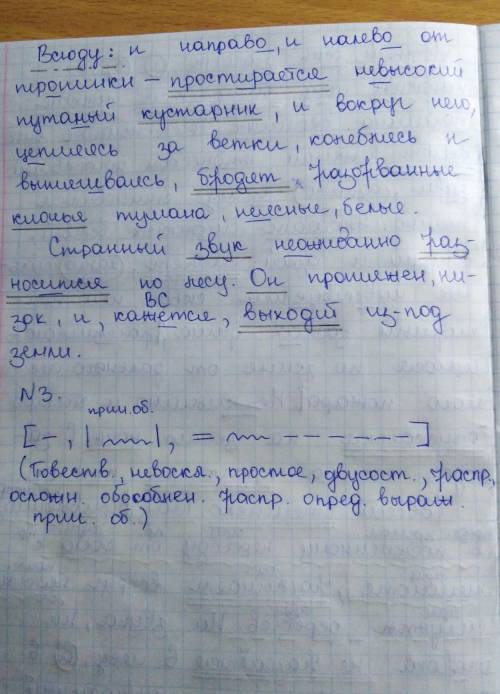 Всюду: и направо, и налево от
тропинки – простирается невысокий
путаный кустарник, и вокруг него,
цепляясь за ветки, колеблясь и
вытягиваясь, бродят разорванные
клочья тумана, неясные, белые.
Странный звук неожиданно раз-
носится по лесу. Он протяжен, ни-
ВС
зок, и, кажется, выходит из-под
земли.
N3.
прич. об.
[–, | |, = - - - - - -]
(Повеств., невоскл., простое, двусост., распр.,
осложн. обособнен. распр. опред. выраж.
прич. об.)